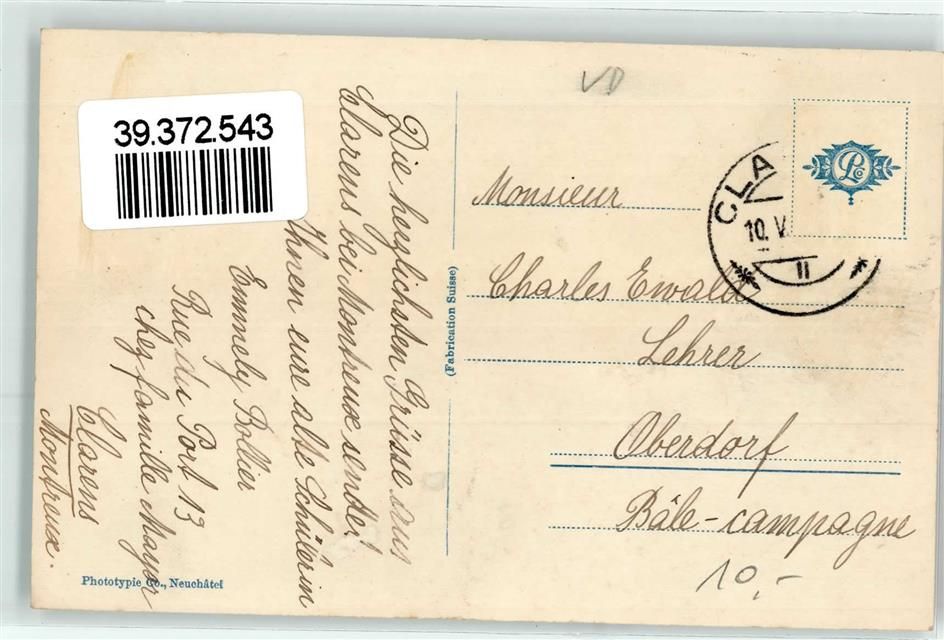 39.372.543
VD
CLA
10. V.
II
PCo
Die herzlichsten Grüsse aus
Clarens bei Montreux sendet
Ihnen eure alte Schülerin
Emmely Bollier
Rue du Port 13
chez famille Mayor
Clarens
Montreux.
(Fabrication Suisse)
Monsieur
Charles Ewald
Lehrer
Oberdorf
Bâle-campagne
10,-
Phototypie Co., Neuchâtel